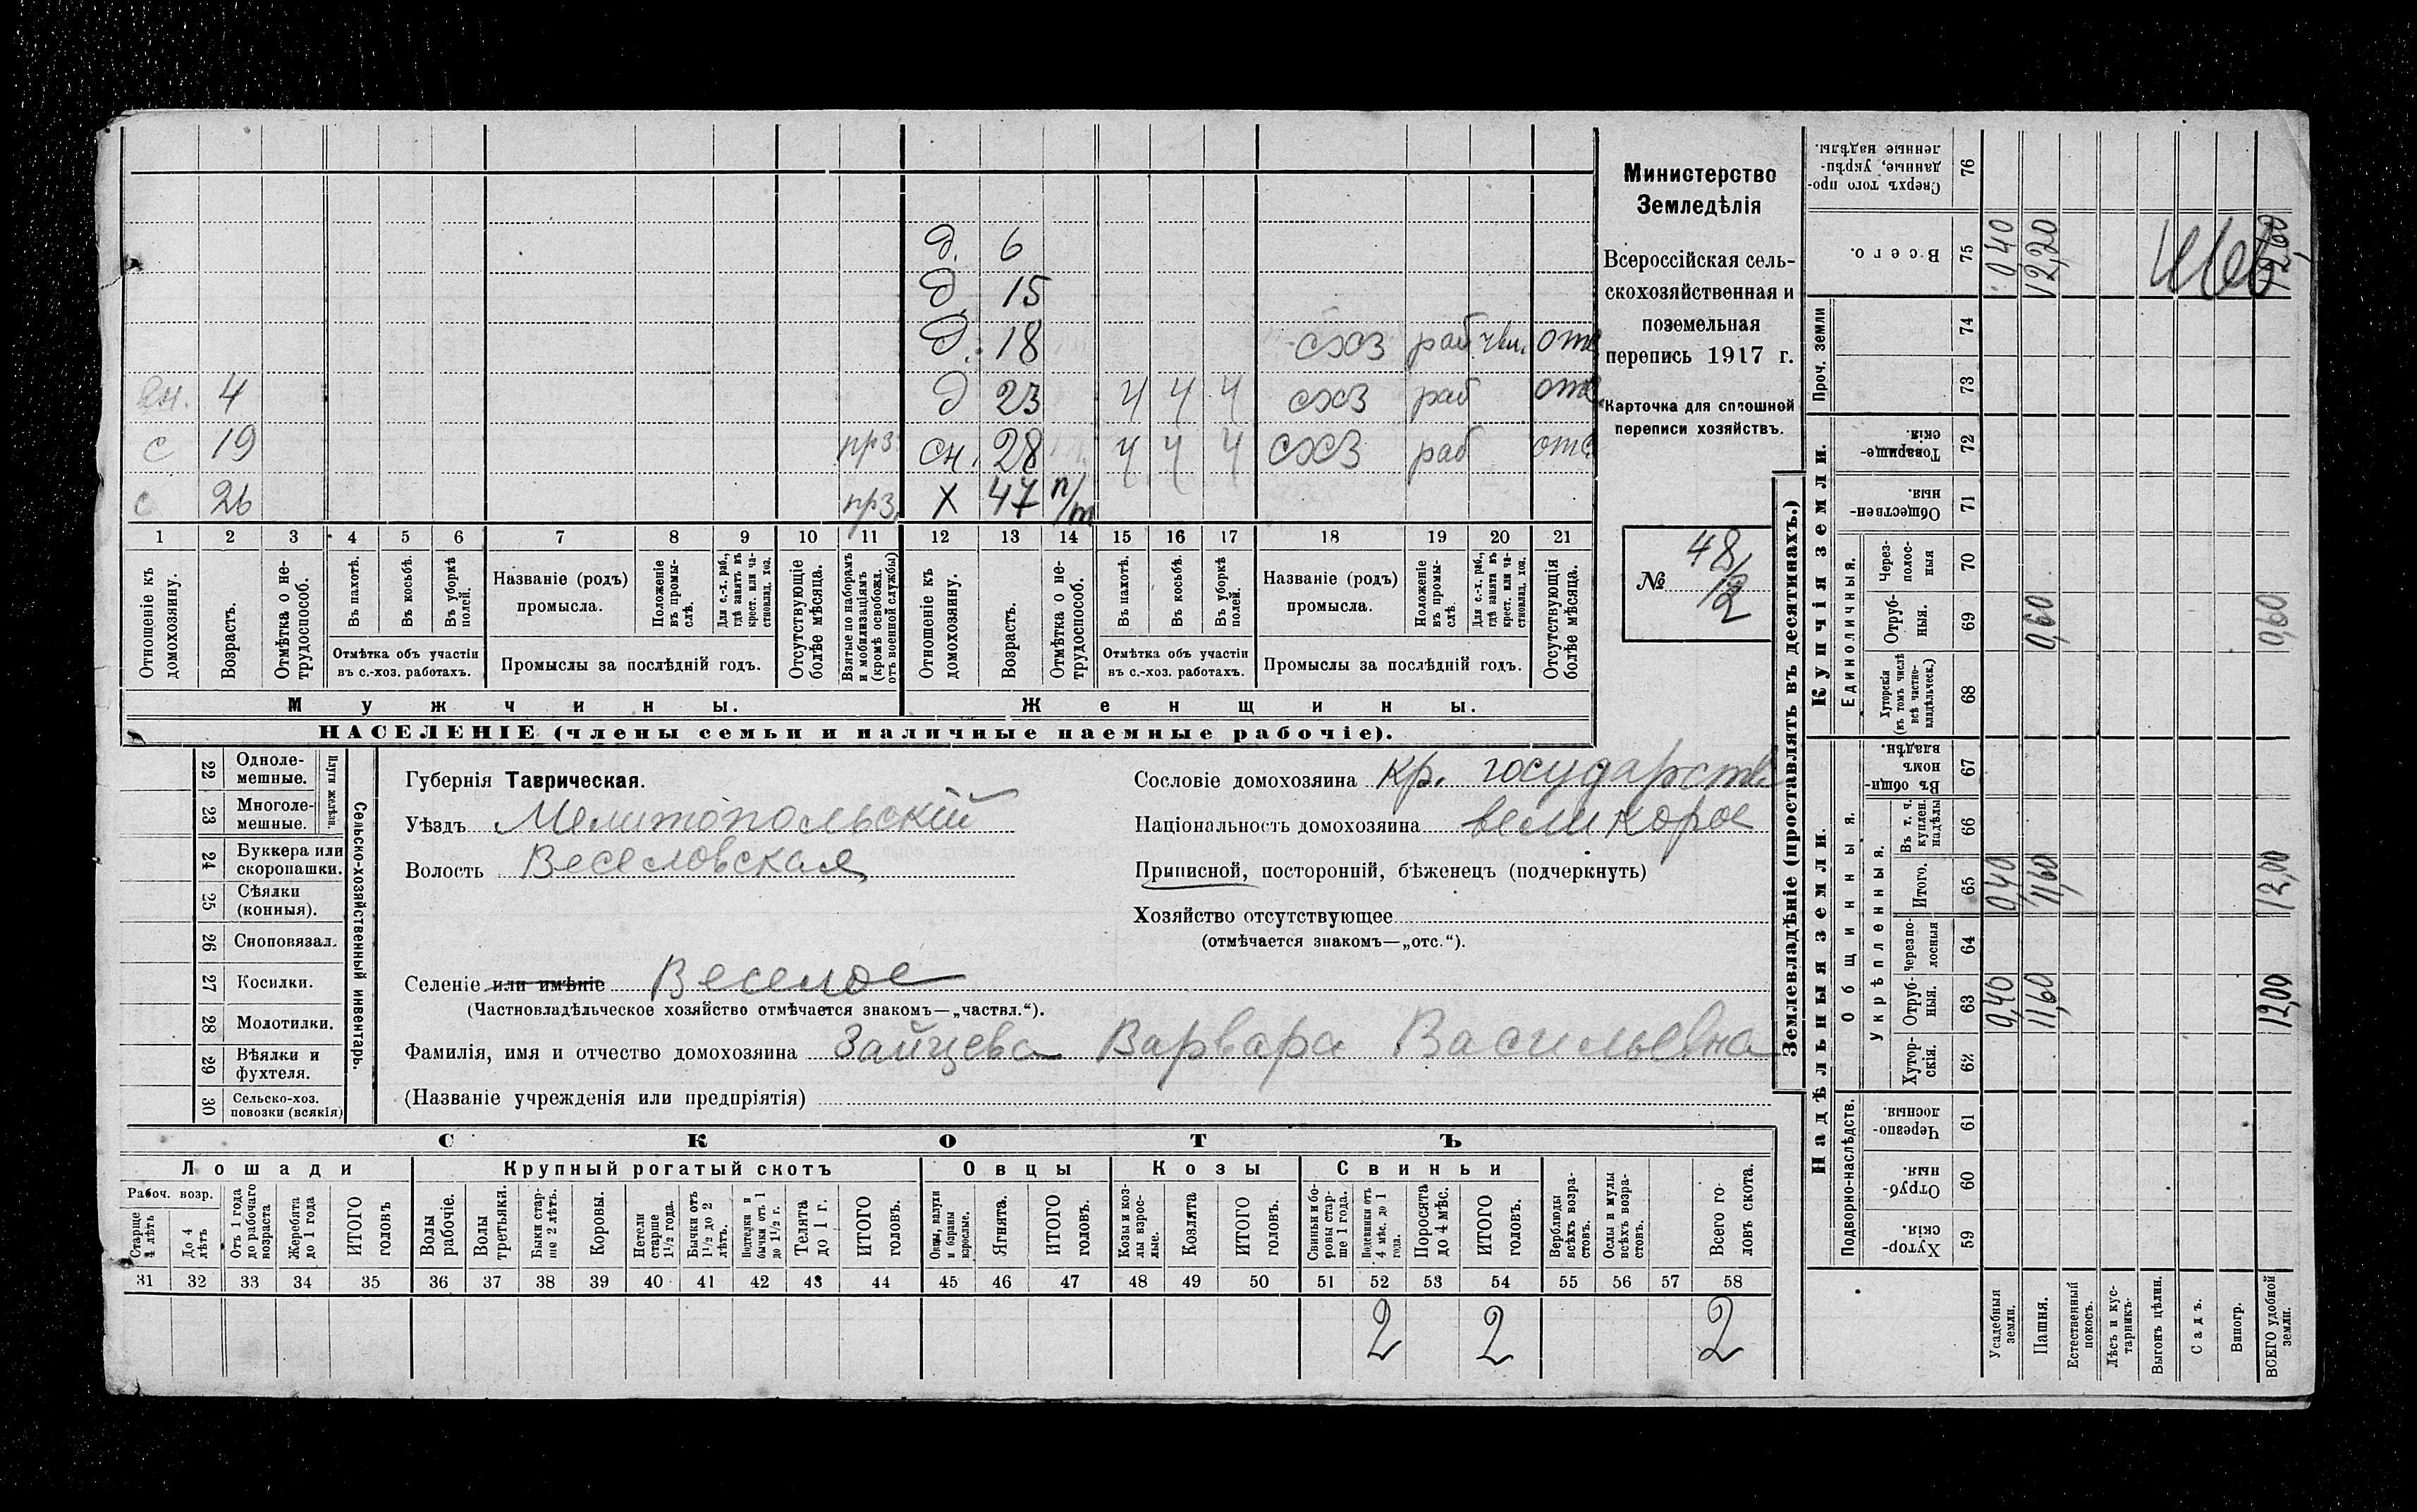 д. 6
д 15
д. 18 схз раб чвл. отс
вн. 4 д 23 ч ч ч схз раб отс
с 19 прз сн. 28 ч ч ч схз раб отс
с 26 прз. х 47 п/т
1 2 3 4 5 6 7 8 9 10 11 12 13 14 15 16 17 18 19 20 21
Отношеніе къ домохозяину.
Возрастъ.
Отмѣтка о нетрудоспособ.
Въ пахотѣ.
Въ косьбѣ.
Въ уборкѣ полей.
Отмѣтка объ участіи
въ с.-хоз. работахъ.
Названіе (родъ)
промысла.
Положеніе въ промыслѣ.
Для с.-х. раб., гдѣ занятъ въ крест. или частновлад. хоз.
Промыслы за послѣдній годъ.
Отсутствующіе болѣе мѣсяца.
Взятые по наборамъ и мобилизаціямъ (кромѣ освобожд. отъ военной службы)
Отношеніе къ домохозяину.
Возрастъ.
Отмѣтка о нетрудоспособ.
Въ пахотѣ.
Въ косьбѣ.
Въ уборкѣ полей.
Отмѣтка объ участіи
въ с.-хоз. работахъ.
Названіе (родъ)
промысла.
Положеніе въ промыслѣ.
Для с.-х. раб., гдѣ занята въ крест. или частновлад. хоз.
Промыслы за послѣдній годъ.
Отсутствующія болѣе мѣсяца.
Мужчины.
Женщины.
НАСЕЛЕНІЕ (члены семьи и наличные наемные рабочіе).
Министерство
Земледѣлія
Всероссійская сель-
скохозяйственная и
поземельная
перепись 1917 г.
Карточка для сплошной
переписи хозяйствъ.
№ 48/12
22 Одноле-
мешные.
23 Многоле-
мешные.
Плуги желѣзн.
24 Буккера или
скоропашки.
25 Сѣялки
(конныя).
26 Сноповязал.
27 Косилки.
28 Молотилки.
29 Вѣялки и
фухтеля.
30 Сельско-хоз.
повозки (всякія)
Сельско-хозяйственный инвентарь.
Губернія Таврическая.
Уѣздъ Мелитопольскій
Волость Веселовская
Сословіе домохозяина кр. государств.
Національность домохозяина великорос
Приписной, посторонній, бѣженецъ (подчеркнуть)
Хозяйство отсутствующее
(отмѣчается знакомъ—„отс.“).
Селеніе или имѣніе Веселое
(Частновладѣльческое хозяйство отмѣчается знакомъ—„частвл.“).
Фамилія, имя и отчество домохозяина Зайцева Варвара Васильевна
(Названіе учрежденія или предпріятія)
СКОТЪ
Лошади
Крупный рогатый скотъ
Овцы
Козы
Свиньи
Рабоч. возр.
Старше 4 лѣтъ
До 4 лѣтъ
Отъ 1 года до рабочаго возраста
Жеребята до 1 года
ИТОГО головъ
Волы рабочіе.
Волы третьяки.
Быки старше 2 лѣтъ.
Коровы.
Нетели старше 1 1/2 года.
Бычки отъ 1 1/2 до 2 лѣтъ.
Подтелки и бычки отъ 1 до 1 1/2 г.
Телята до 1 г.
ИТОГО головъ.
Овцы, валухи и бараны взрослые.
Ягнята.
ИТОГО головъ.
Козы и козлы взрослые.
Козлята
ИТОГО головъ.
Свиньи и боровы старше 1 года.
Подсвинки отъ 4 мѣс. до 1 года.
Поросята до 4 мѣс.
ИТОГО головъ.
Верблюды всѣхъ возрастовъ.
Ослы и мулы всѣхъ возрастовъ.
Всего головъ скота.
31 32 33 34 35 36 37 38 39 40 41 42 43 44 45 46 47 48 49 50 51 52 53 54 55 56 57 58
2 2 2
Землевладѣніе (проставлять въ десятинахъ.)
Надѣльныя земли.
Купчія земли.
Проч. земли
Подворно-наслѣдств.
Общинныя.
Укрѣпленныя.
Единоличныя.
Сверхъ того проданные, укрѣпленные надѣлы. 76
Всего. 75 0,40 12,20 12,60
74
73
Товарищескія. 72
Общественныя. 71
Черезполосныя 70
Отрубныя. 69 0,60 0,60
Хуторскія (въ томъ числѣ всѣ частновладѣльческ.) 68
Въ общинномъ владѣн. 67
Въ т. ч. куплен. надѣлы 66
Итого. 65 0,40 11,60 12,00
Черезполосныя 64
Отрубныя. 63 0,40 11,60 12,00
Хуторскія. 62
Черезполосныя. 61
Отрубныя. 60
Хуторскія. 59
Усадебныя земли.
Пашня.
Естественный покосъ.
Лѣсъ и кустарникъ.
Выгонъ цѣлин.
Садъ.
Виногр.
ВСЕГО удобной земли.